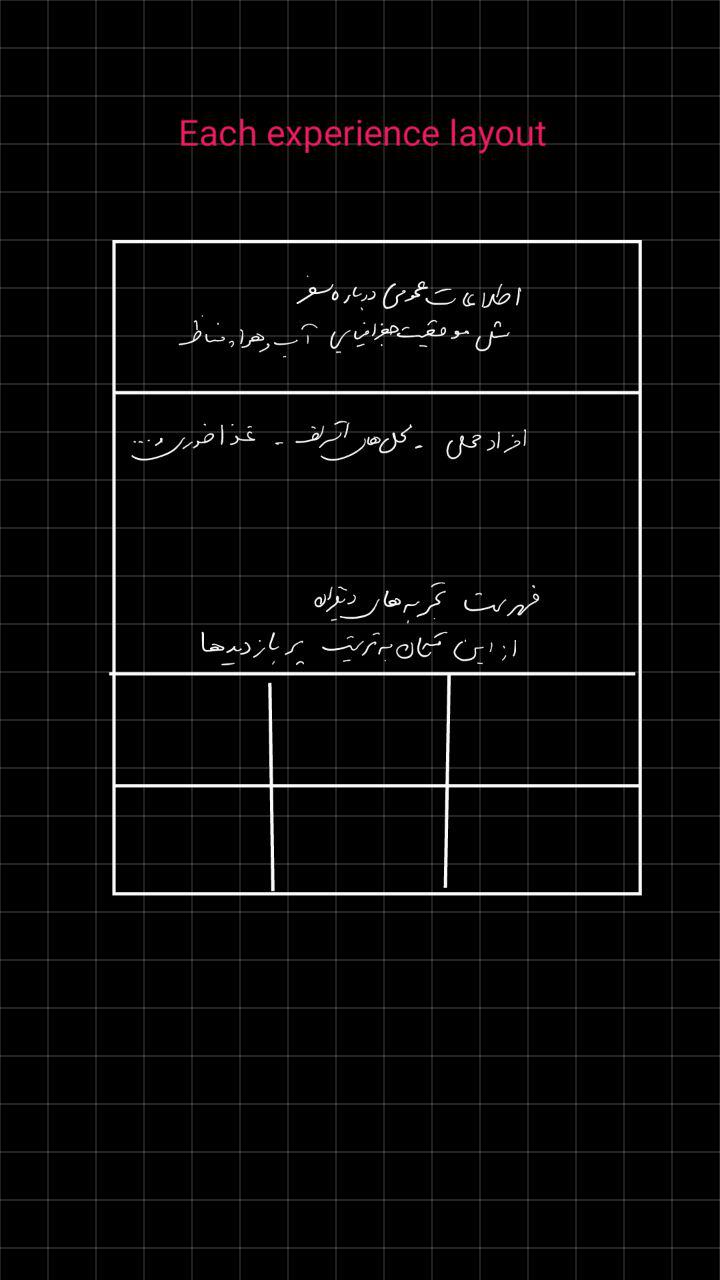 Each experience layout
اطلاعات عمومی درباره سفر
مثل موقعیت جغرافیایی آب و هوا، مناظر
افراد محلی - محل‌های اتریف - غذاخوری و...
فهرست تجربه‌های دیگران
از این مکان به ترتیب پر بازدیدها